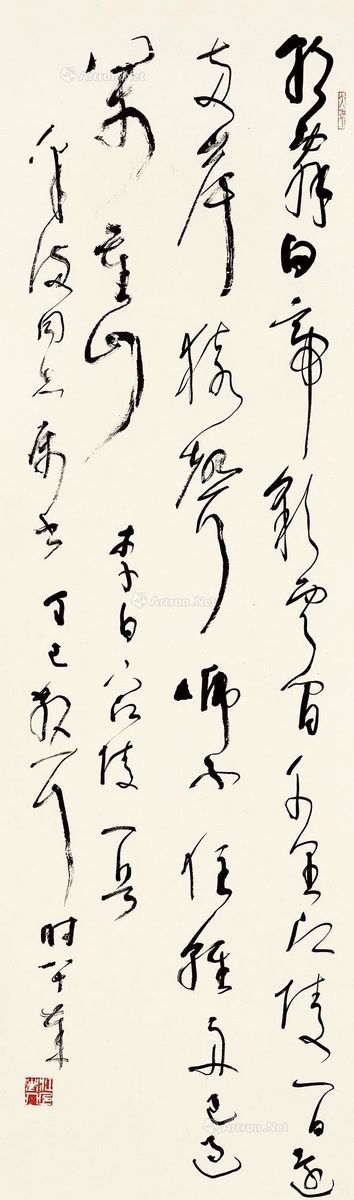 朝辞白帝彩云间千里江陵一日还
两岸猿声啼不住轻舟已过
万重山
李白下江陵一首
同志属书丁巳散耳时年